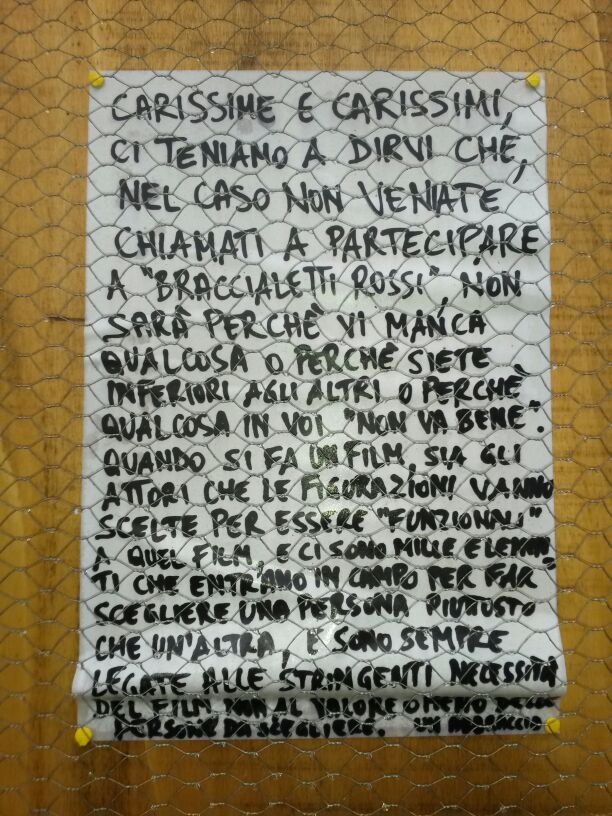 CARISSIME E CARISSIMI,
CI TENIAMO A DIRVI CHE,
NEL CASO NON VENIATE
CHIAMATI A PARTECIPARE
A "BRACCIALETTI ROSSI", NON
SARÀ PERCHÈ VI MANCA
QUALCOSA O PERCHÈ SIETE
INFERIORI AGLI ALTRI O PERCHÈ
QUALCOSA IN VOI "NON VA BENE".
QUANDO SI FA UN FILM, SIA GLI
ATTORI CHE LE FIGURAZIONI VANNO
SCELTE PER ESSERE "FUNZIONALI"
A QUEL FILM, E CI SONO MILLE ELEMEN-
TI CHE ENTRANO IN CAMPO PER FAR
SCEGLIERE UNA PERSONA PIUTTOSTO
CHE UN'ALTRA, E SONO SEMPRE
LEGATE ALLE STRINGENTI NECESSITÀ
DEL FILM NON AL VALORE O MENO DELLE
PERSONE DA SCEGLIERE. UN ABBRACCIO